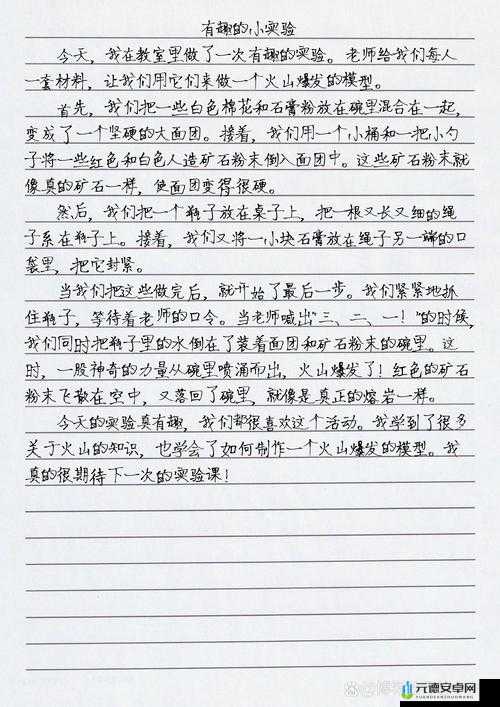 有趣的小实验
今天，我在教室里做了一次有趣的实验。老师给我们每人
一套材料，让我们用它们来做一个火山爆发的模型。
首先，我们把一些白色棉花和石膏粉放在碗里混合在一起，
变成了一个坚硬的大面团。接着，我们用一个小桶和一把小勺
子将一些红色和白色人造矿石粉末倒入面团中。这些矿石粉末就
像真的矿石一样，使面团变得很硬。
然后，我们把一个瓶子放在桌子上，把一根又长又细的绳
子系在瓶子上。接着，我们又将一小块石膏放在绳子另一端的口
袋里，把它封紧。
当我们把这些做完后，就开始了最后一步。我们紧紧地抓
住瓶子，等待着老师的口令。当老师喊出"三、二、一！"的时候，
我们同时把瓶子里的水倒在了装着面团和矿石粉末的碗里。这
时，一股神奇的力量从碗里喷涌而出，火山爆发了！红色的矿石
粉末飞散在空中，又落回了碗里，就像是真正的熔岩一样。
今天的实验真有趣，我们都很喜欢这个活动。我学到了很多
关于火山的知识，也学会了如何制作一个火山爆发的模型。我
真的很期待下一次的实验课！
元德安卓网